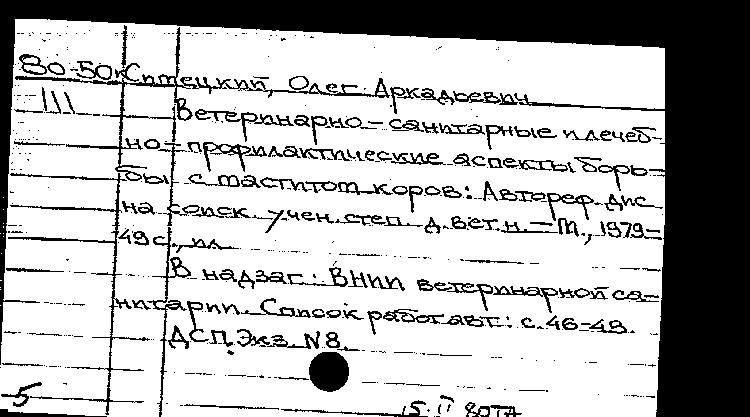 80-50к Ситецкий, Олег Аркадьевич
III Ветеринарно-санитарные и лечеб-
но-профилактические аспекты борь-
бы с маститом коров: Автореф. дис
на соиск. учен. степ. д. вет. н. — М., 1979-
49 с., ил
В надзаг: ВНИИ ветеринарной са-
нитарии. Список работ авт: с. 46-49.
ДСП. Экз. N8.
5 15.II 80